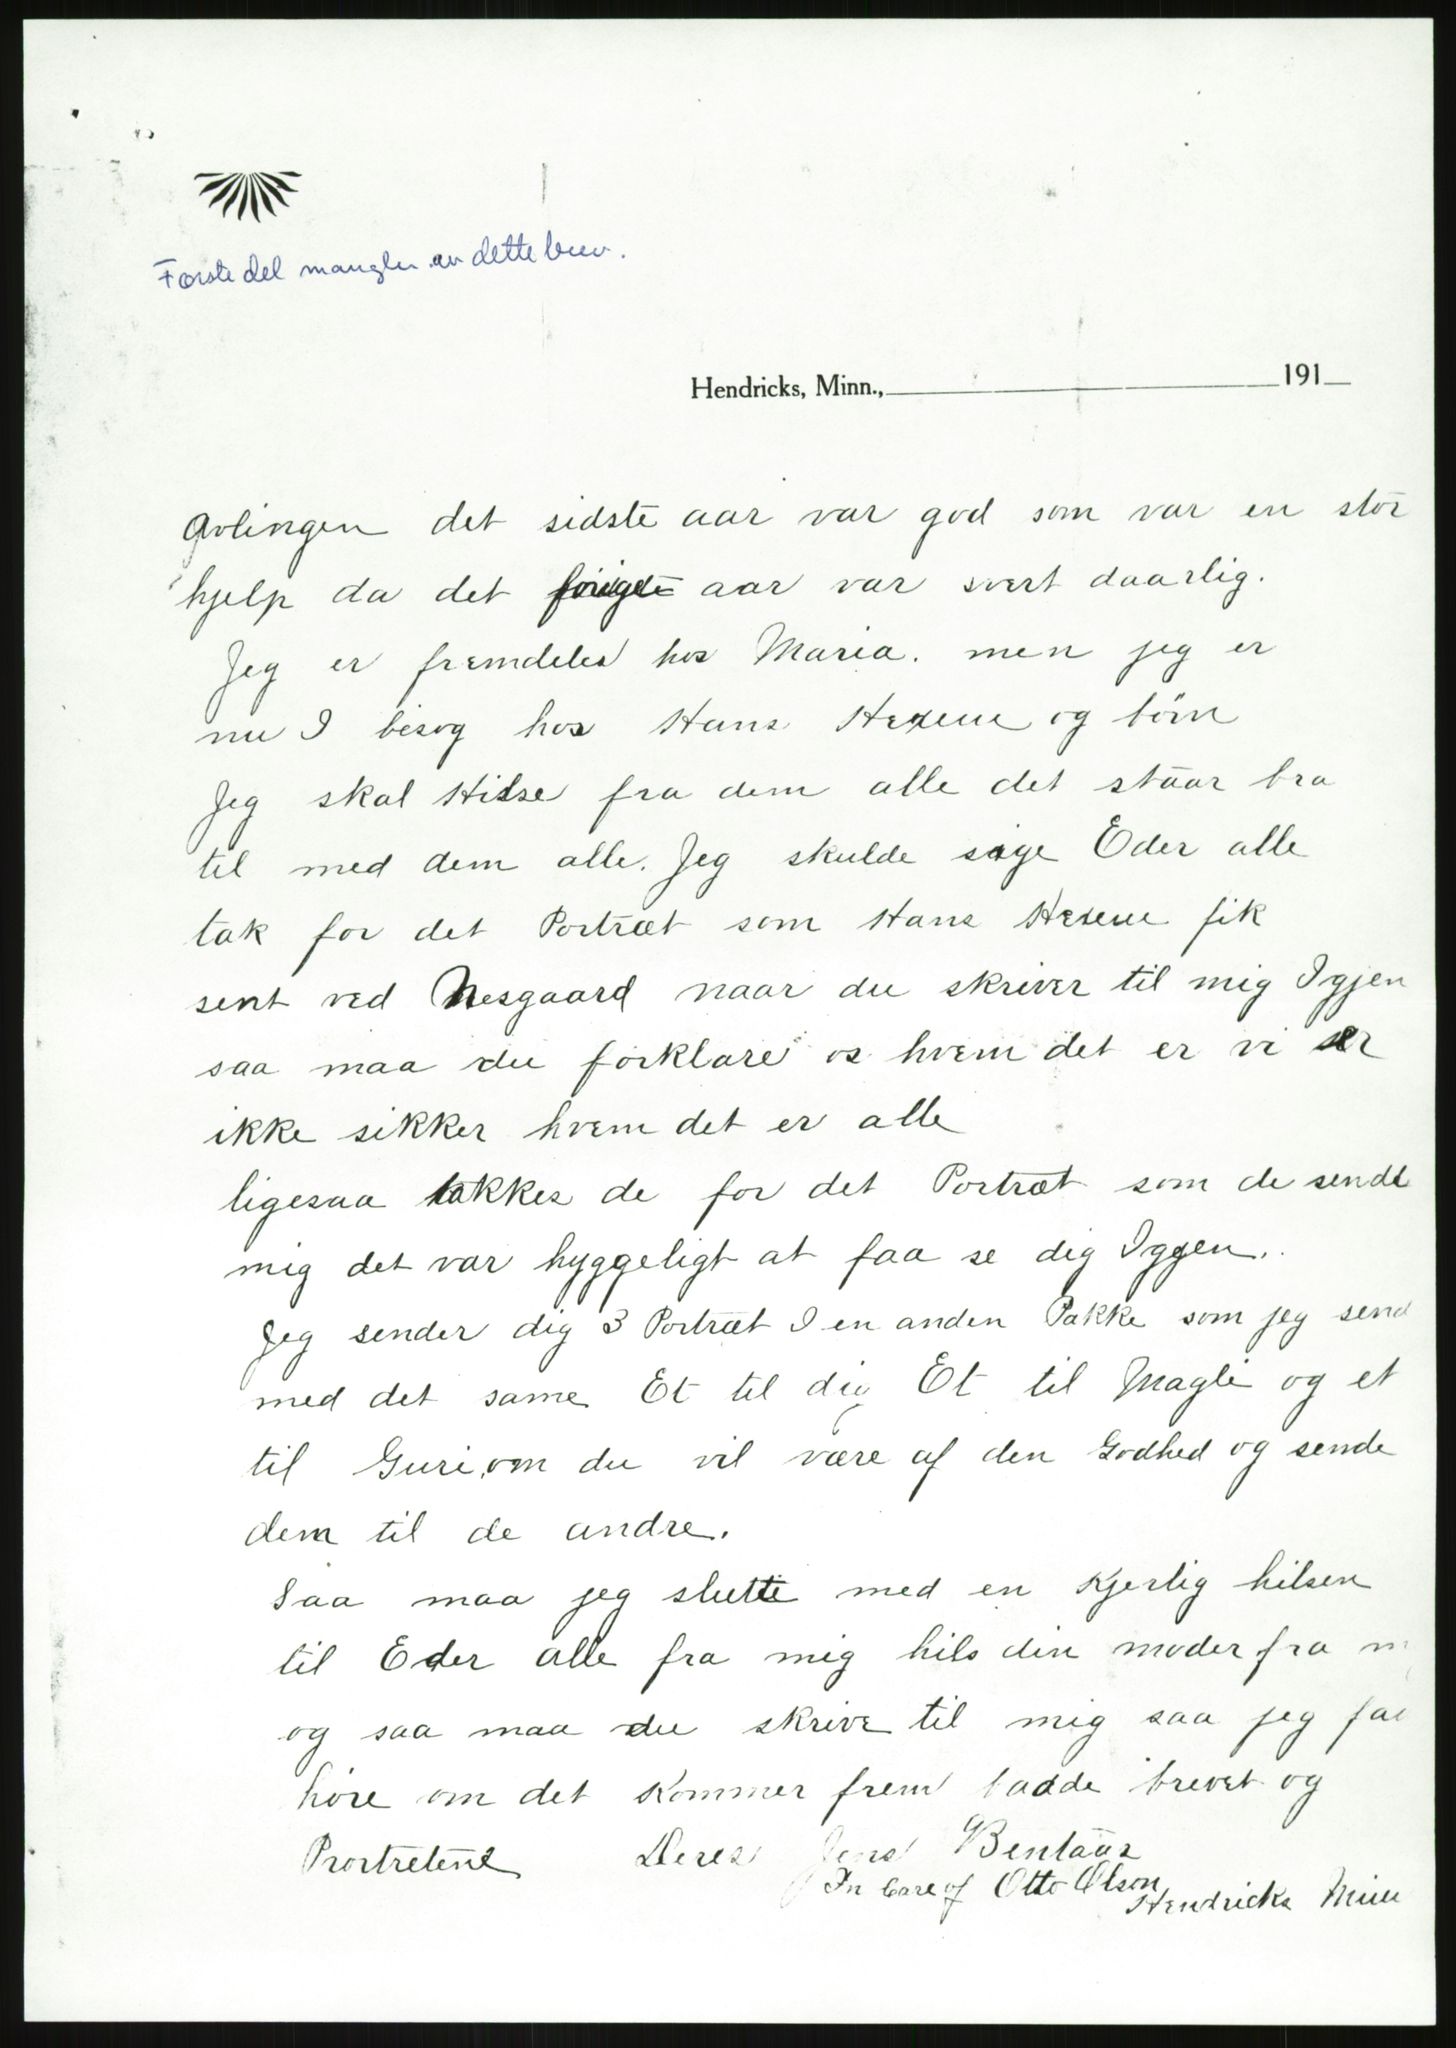 Første del mangler av dette brev.
Hendricks, Minn., 191
Avlingen det sidste aar var god som var en stor
hjelp da det forige aar var svert daarlig.
Jeg er fremdeles hos Maria. men jeg er
nu I besøg hos Hans Hexem og börn
Jeg skal Hilse fra dem alle det stāar bra
til med dem alle. Jeg skulde sige Eder alle
tak for det Portræt som Hans Hexem fik
sent ved Nesgaard naar du skriver til mig Igjen
saa maa du forklare os hvem det er vi er
ikke sikker hvem det er alle
ligesaa takkes de for det Portræt som de sendt
mig det var hyggeligt at faa se dig Iggen.
Jeg sender dig 3 Portræt I en anden Pakke som jeg send
med det same Et til dig Et til Magli og et
til Guri, om du vil være af den Godhed og sende
dem til de andre.
Saa maa jeg slutte med en Kjerlig hilsen
til Eder alle fra mig hils din moder fra m
og saa maa du skrive til mig saa jeg faa
høre om det Kommer frem badde brevet og
Prortretene Deres Jens Bentāas
In Care of Otto Olson
Hendricks Minn